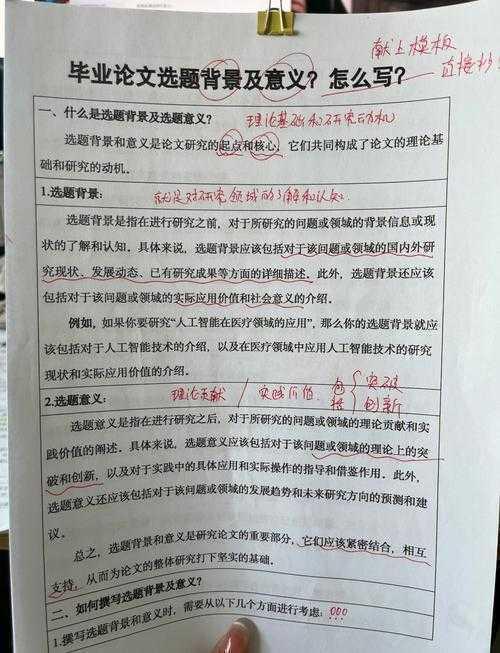 献上模板
直接抄
毕业论文选题背景及意义？怎么写？
一、什么是选题背景及选题意义？ 理论基础和研究动机
选题背景和意义是论文研究的起点和核心，它们共同构成了论文的理论基
础和研究的动机。
1.选题背景： 就是对研究领域的了解和认知。
选题背景是指在进行研究之前，对于所研究的问题或领域的背景信息或现
状的了解和认知。具体来说，选题背景应该包括对于该问题或领域的国内外研
究现状、发展动态、已有研究成果等方面的详细描述。此外，选题背景还应该
包括对于该问题或领域的实际应用价值和社会意义的介绍。
例如，如果你要研究“人工智能在医疗领域的应用”，那么你的选题背景就应
该包括对于人工智能技术的介绍，以及在医疗领域中应用人工智能技术的研究
现状和实际应用价值的介绍。
2.选题意义： 理论贡献 / 实践价值 包括 突破
创新
选题意义是指在进行研究之后，对于所研究的问题或领域的理论贡献和实
践价值的阐述。具体来说，选题意义应该包括对于该问题或领域的理论上的突
破和创新，以及对于实践中的具体应用和实际操作的指导和借鉴作用。此外，
选题意义还应该包括对于该问题或领域的发展趋势和未来研究方向的预测和建
议。
总之，选题背景和意义是研究论文的重要部分，它们应该紧密结合，相互
支持，从而为论文的整体研究打下坚实的基础。
二、如何撰写选题背景及意义？
1.撰写选题背景和意义时，需要从以下几个方面进行考虑：